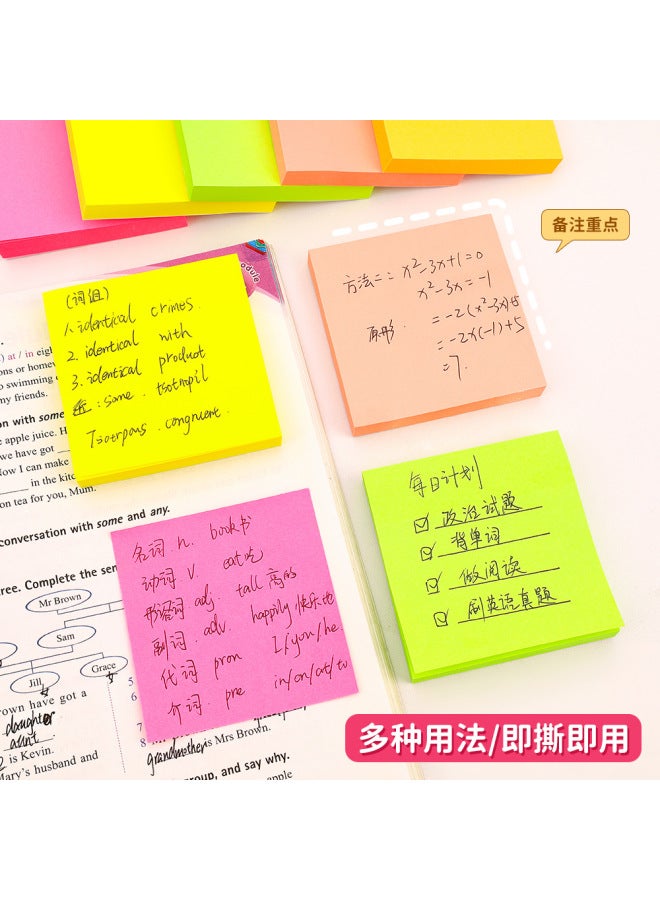 备注重点
方法二: x²-3x+1=0
x²-3x=-1
原形. =-2(x²-3x)+5
=-2×(-1)+5
=7.
(词组)
1. identical crimes.
2. identical with
3. identical product
: same. Isotropil
Isotrpous. congruent.
每日计划
政治试题
背单词
做阅读
刷英语真题
名词 n. book书
动词 v. eat吃
形容词 adj. tall 高的
副词. adv. happily 快乐地
代词 pron I/you/he.
介词. pre in/on/at/to
module
) at / in eigh
ons or homew
o swimming
my friends.
on with some
apple juice. H
we have got
Now I can make
in the kitc
on tea for you, Mum.
conversation with some and any.
ree. Complete the sen
Mr Brown
Sam
Jill
Grace
own have got a
daughter
aunt
is Kevin.
Mary's husband and
5
6
7
8
grandmother is Mrs Brown.
roup, and say why.
apple
多种用法/即撕即用